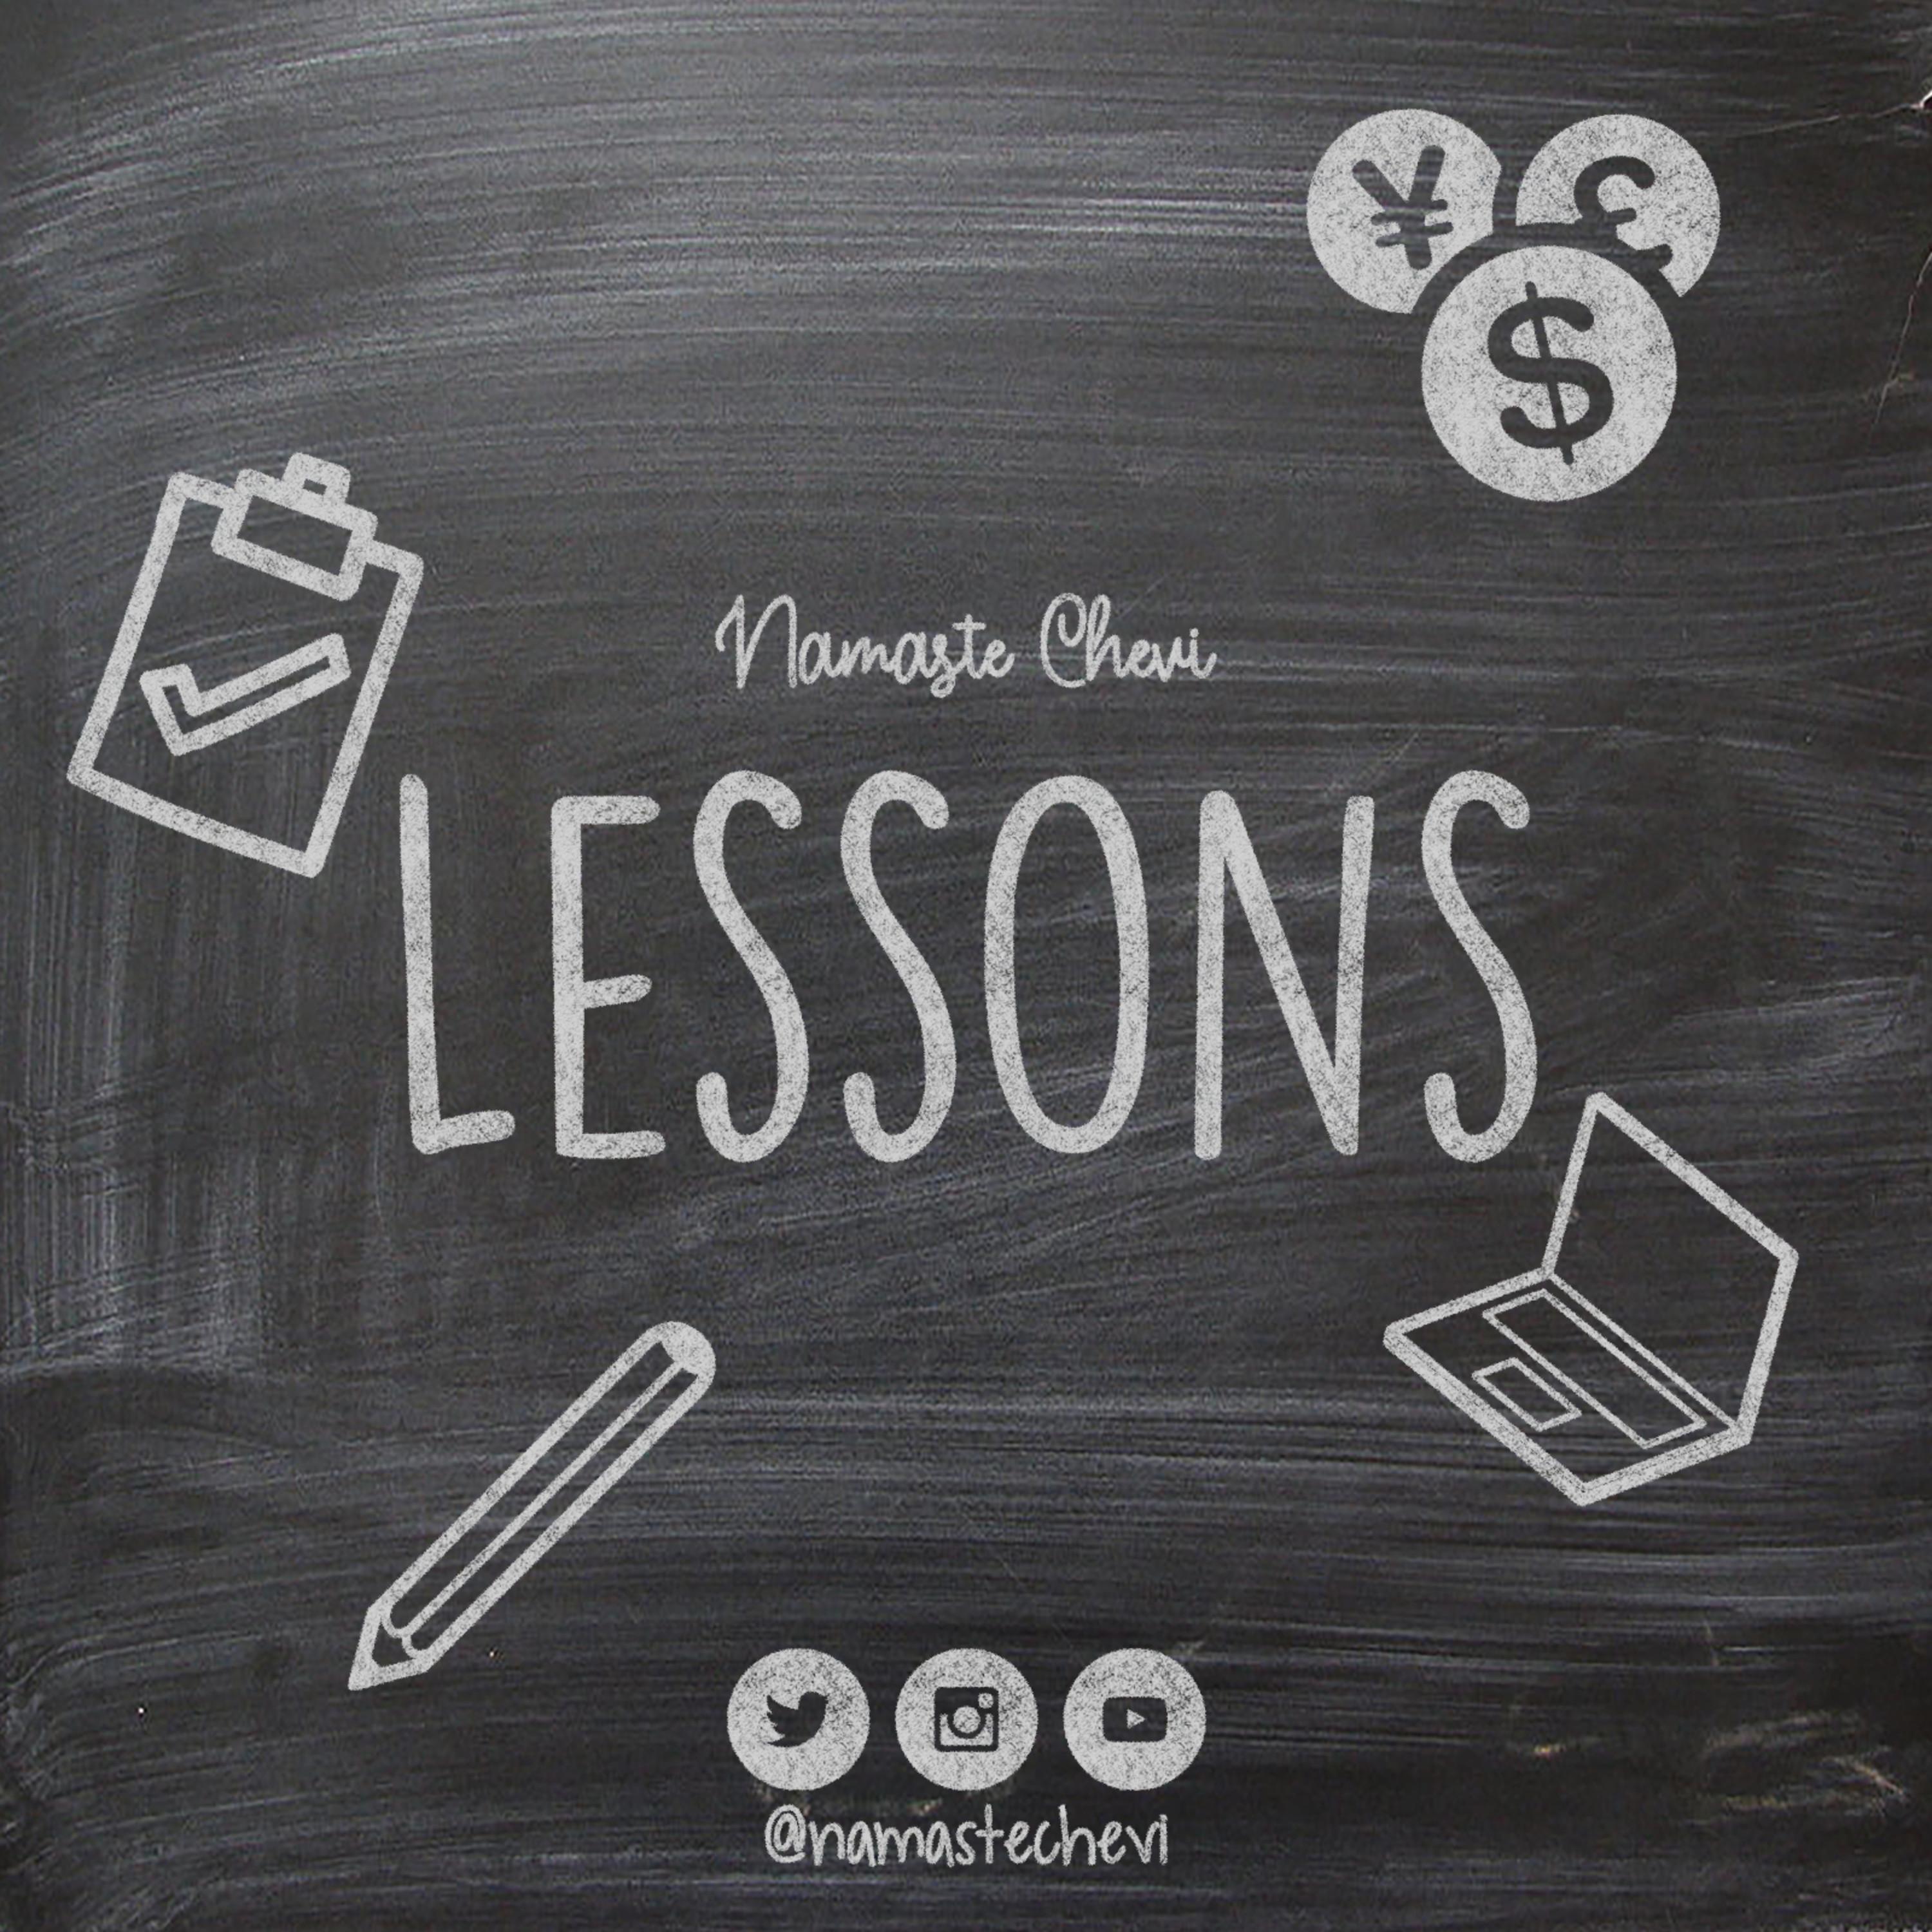 ¥ £
$
Namaste Chevi
LESSONS
@namastechevi